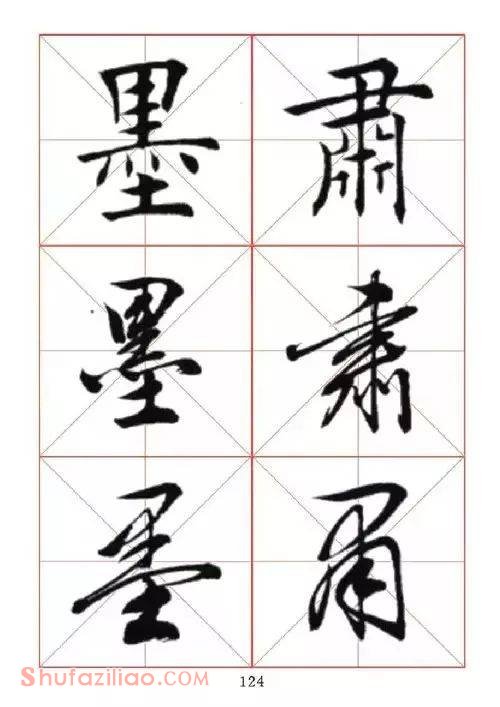 墨 肅
墨 肅
墨 肅
Shufaziliao.com
124